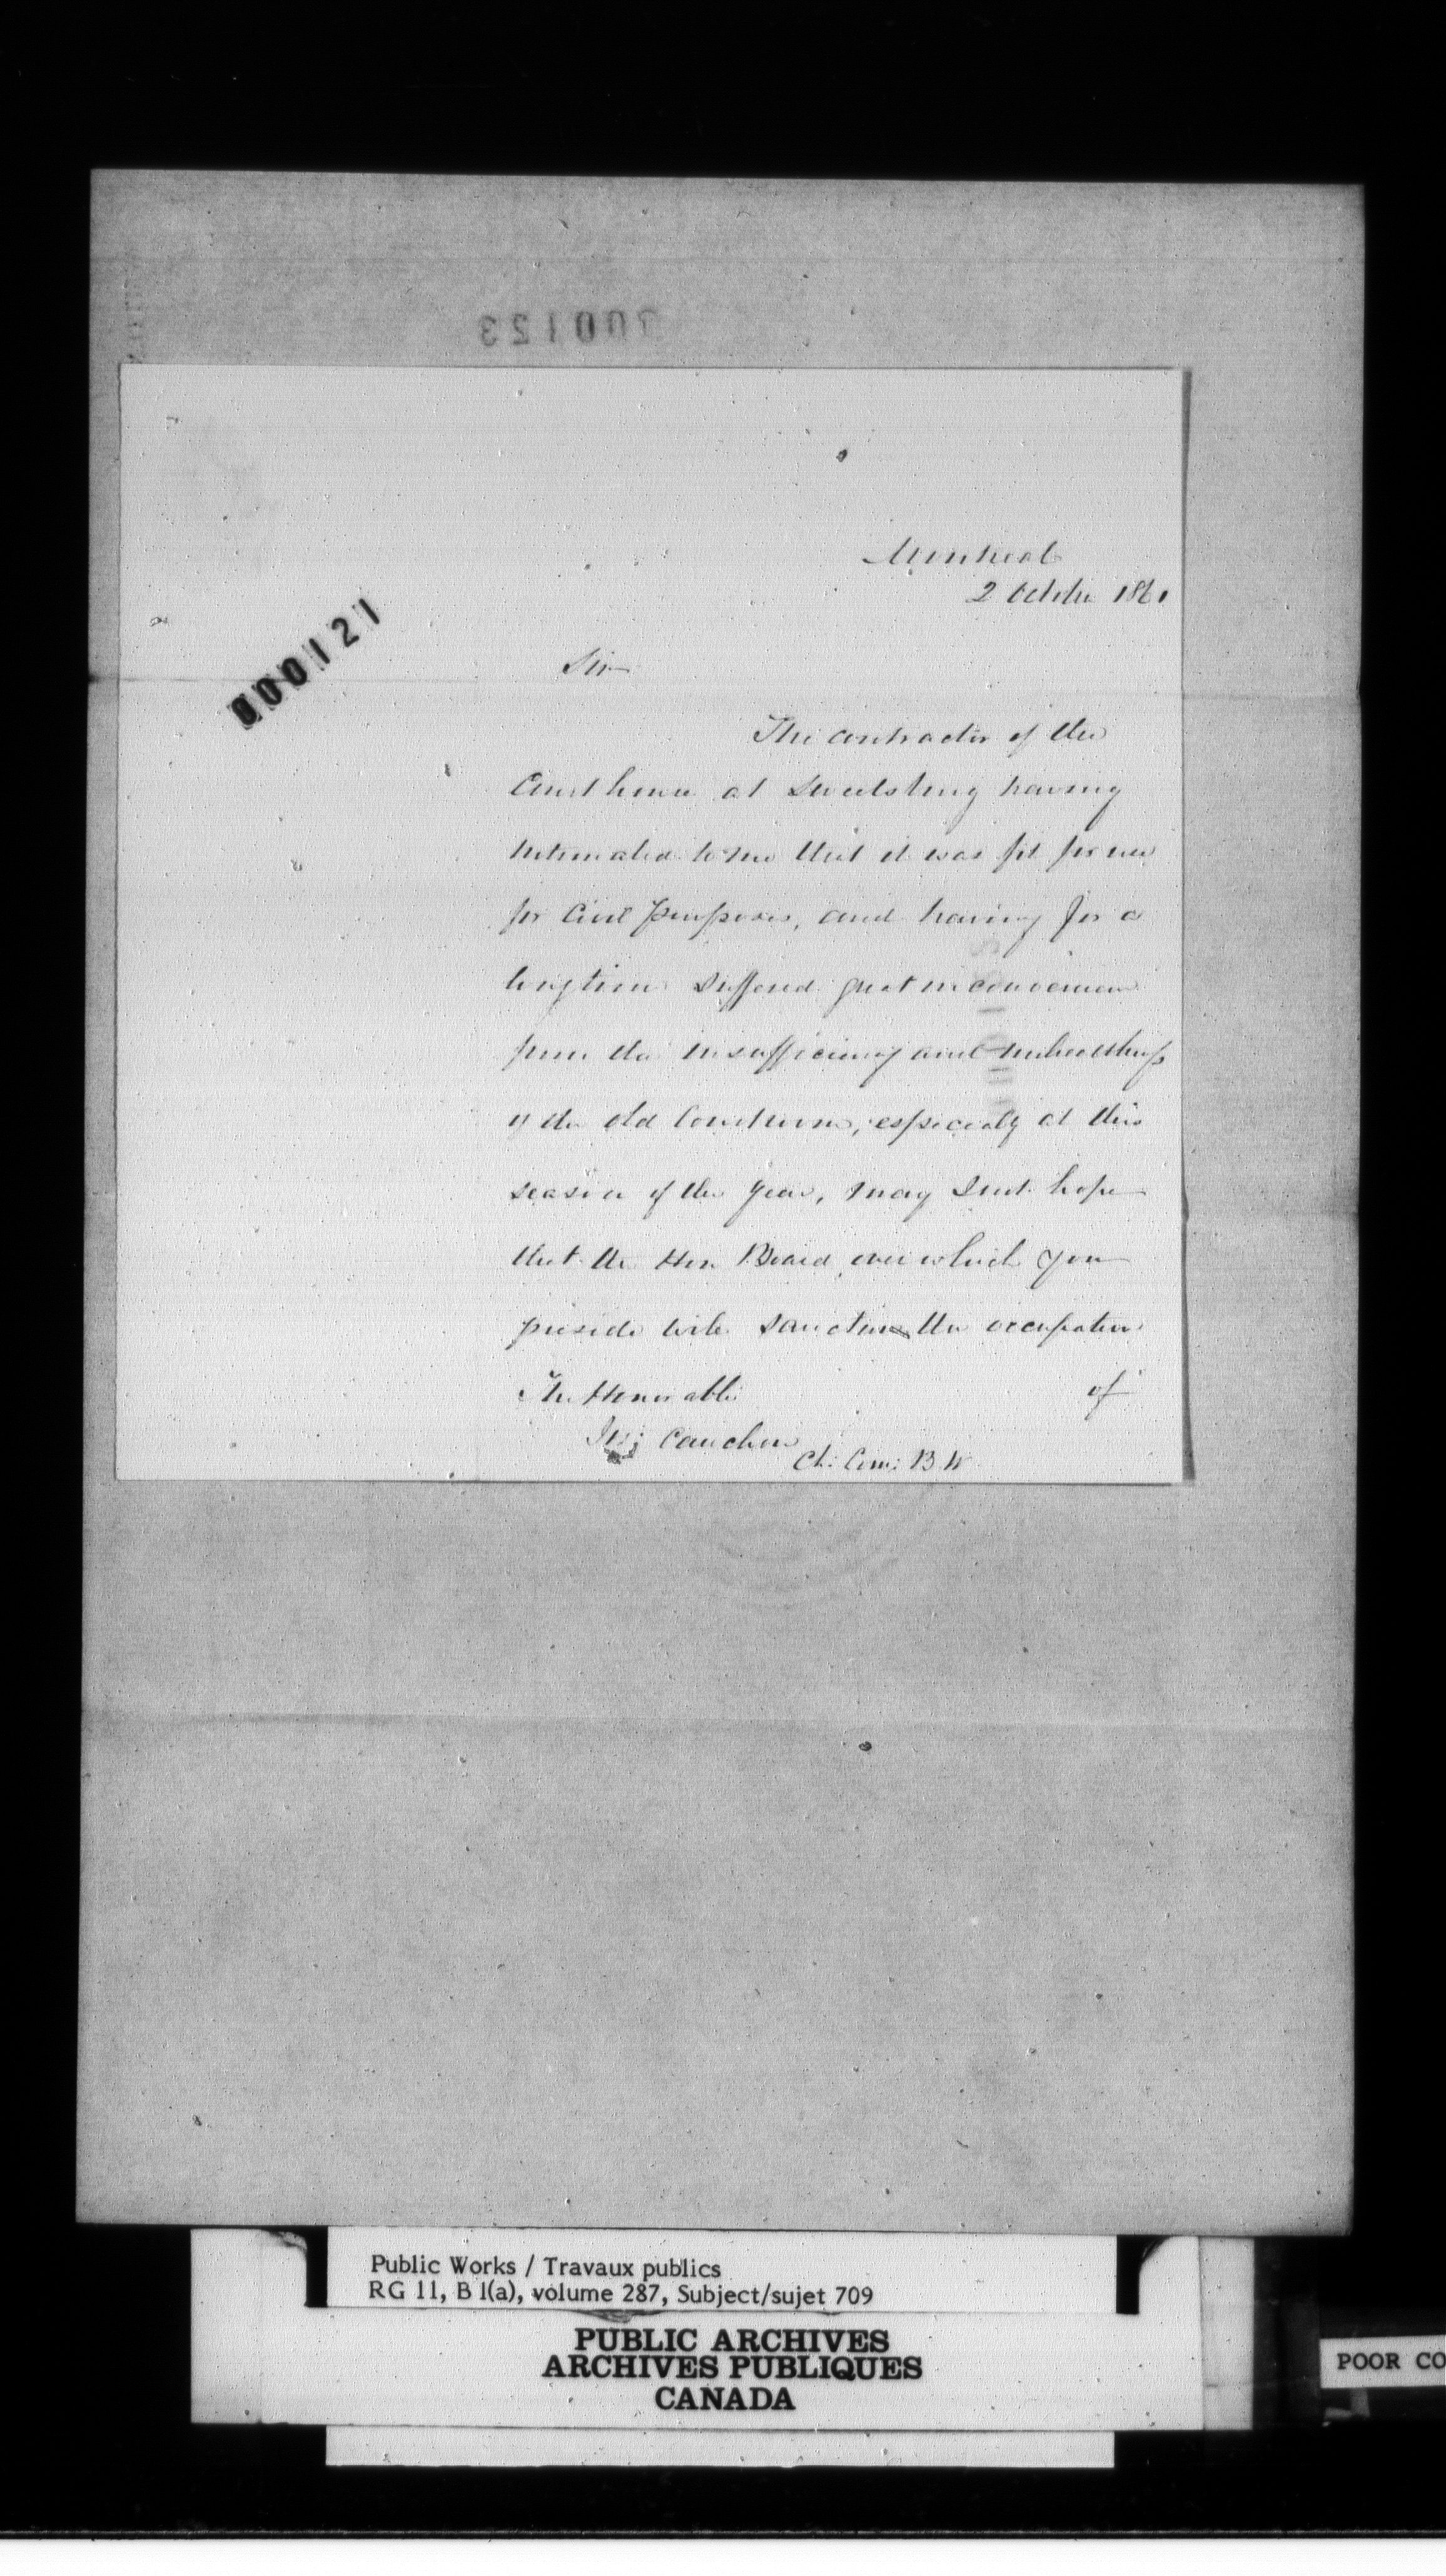 000123
Montreal
2 October 1861
000121
Sir
The contractor of the
Court house at Sweetsburg having
intimated to me that it was fit for use
for Civil purposes, and having for a
long time suffered great inconvenience
from the insufficiency and
of the old Courthouse, especially at this
season of the year, may I not hope
that the Hon Board over which you
preside will sanction the occupation
The Honorable of
Jos: Cauchon
Ch: Com: B.W
Public Works / Travaux publics
RG 11, B 1(a), volume 287, Subject/sujet 709
PUBLIC ARCHIVES
ARCHIVES PUBLIQUES
CANADA
POOR CO